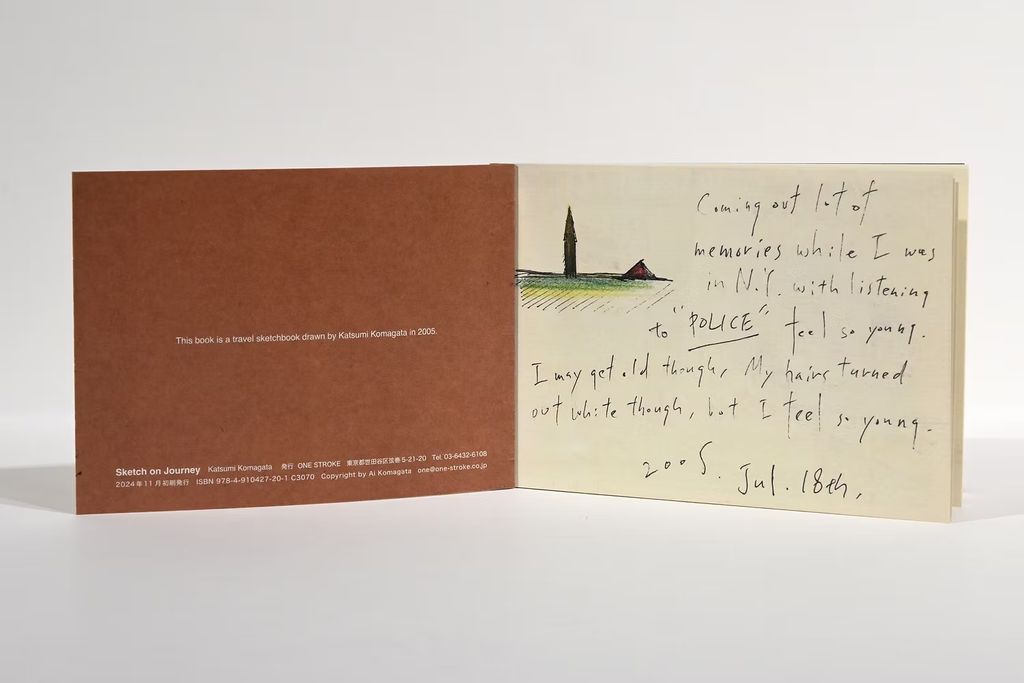 This book is a travel sketchbook drawn by Katsumi Komagata in 2005.
Sketch on Journey Katsumi Komagata 発行 ONE STROKE 東京都世田谷区弦巻5-21-20 Tel. 03-6432-6108
2024年11月初刷発行 ISBN 978-4-910427-20-1 C3070 Copyright by Ai Komagata one@one-stroke.co.jp
Coming out lot of
memories while I was
in N.Y. with listening
to "POLICE" feel so young.
I may get old though, My hairs turned
out white though, but I feel so young.
2005. Jul. 18th,